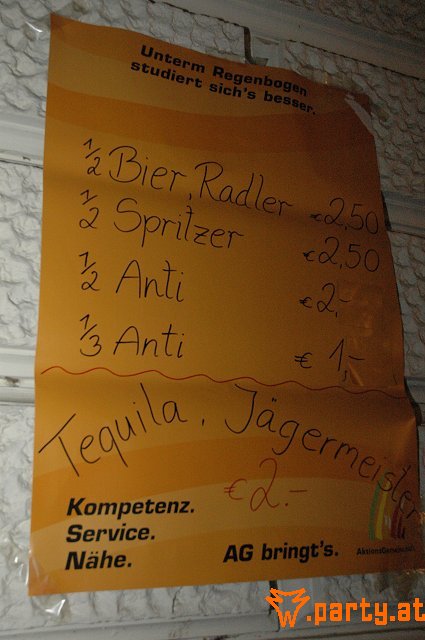 Unterm Regenbogen
studiert sich's besser.
1/2 Bier, Radler €2,50
1/2 Spritzer €2,50
1/2 Anti €2,-
1/3 Anti € 1,-
Tequila, Jägermeister
€2.-
Kompetenz.
Service.
Nähe.
AG bringt's.
AktionsGemeinschaft
party.at